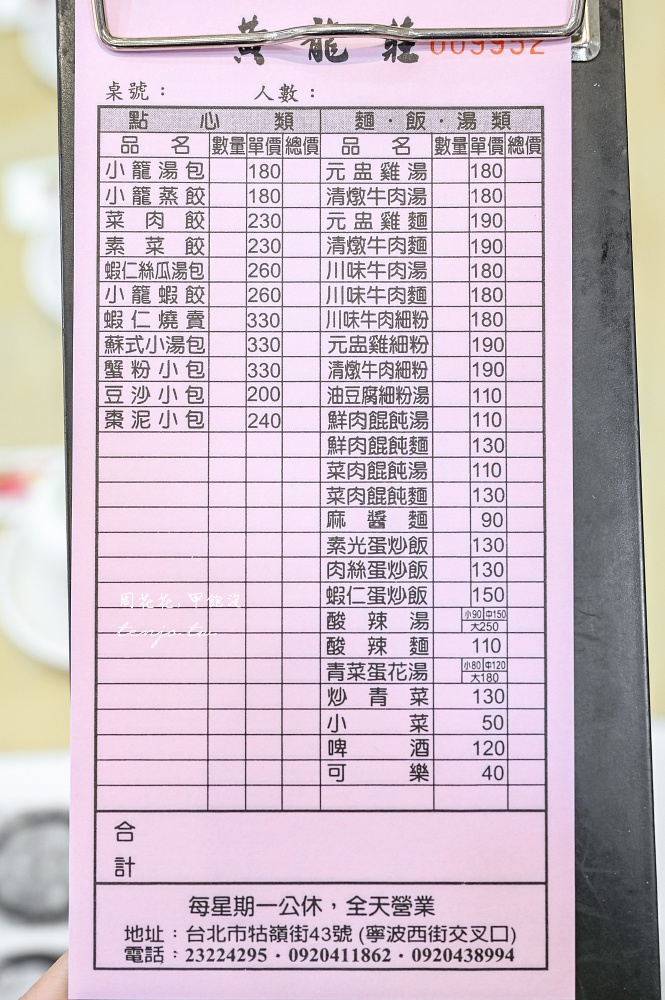 黃龍莊 009952
桌號： 人數：
點心類 麵·飯·湯類
品名 數量 單價 總價 品名 數量 單價 總價
小籠湯包 180 元盅雞湯 180
小籠蒸餃 180 清燉牛肉湯 180
菜肉餃 230 元盅雞麵 190
素菜餃 230 清燉牛肉麵 190
蝦仁絲瓜湯包 260 川味牛肉湯 180
小籠蝦餃 260 川味牛肉麵 180
蝦仁燒賣 330 川味牛肉細粉 180
蘇式小湯包 330 元盅雞細粉 190
蟹粉小包 330 清燉牛肉細粉 190
豆沙小包 200 油豆腐細粉湯 110
棗泥小包 240 鮮肉餛飩湯 110
鮮肉餛飩麵 130
菜肉餛飩湯 110
菜肉餛飩麵 130
麻醬麵 90
素光蛋炒飯 130
肉絲蛋炒飯 130
蝦仁蛋炒飯 150
酸辣湯 小90 中150 大250
酸辣麵 110
青菜蛋花湯 小80 中120 大180
炒青菜 130
小菜 50
啤酒 120
可樂 40
周花花，甲飽沒
tenjo.tw
合計
每星期一公休，全天營業
地址：台北市牯嶺街43號 (寧波西街交叉口)
電話：23224295·0920411862·0920438994